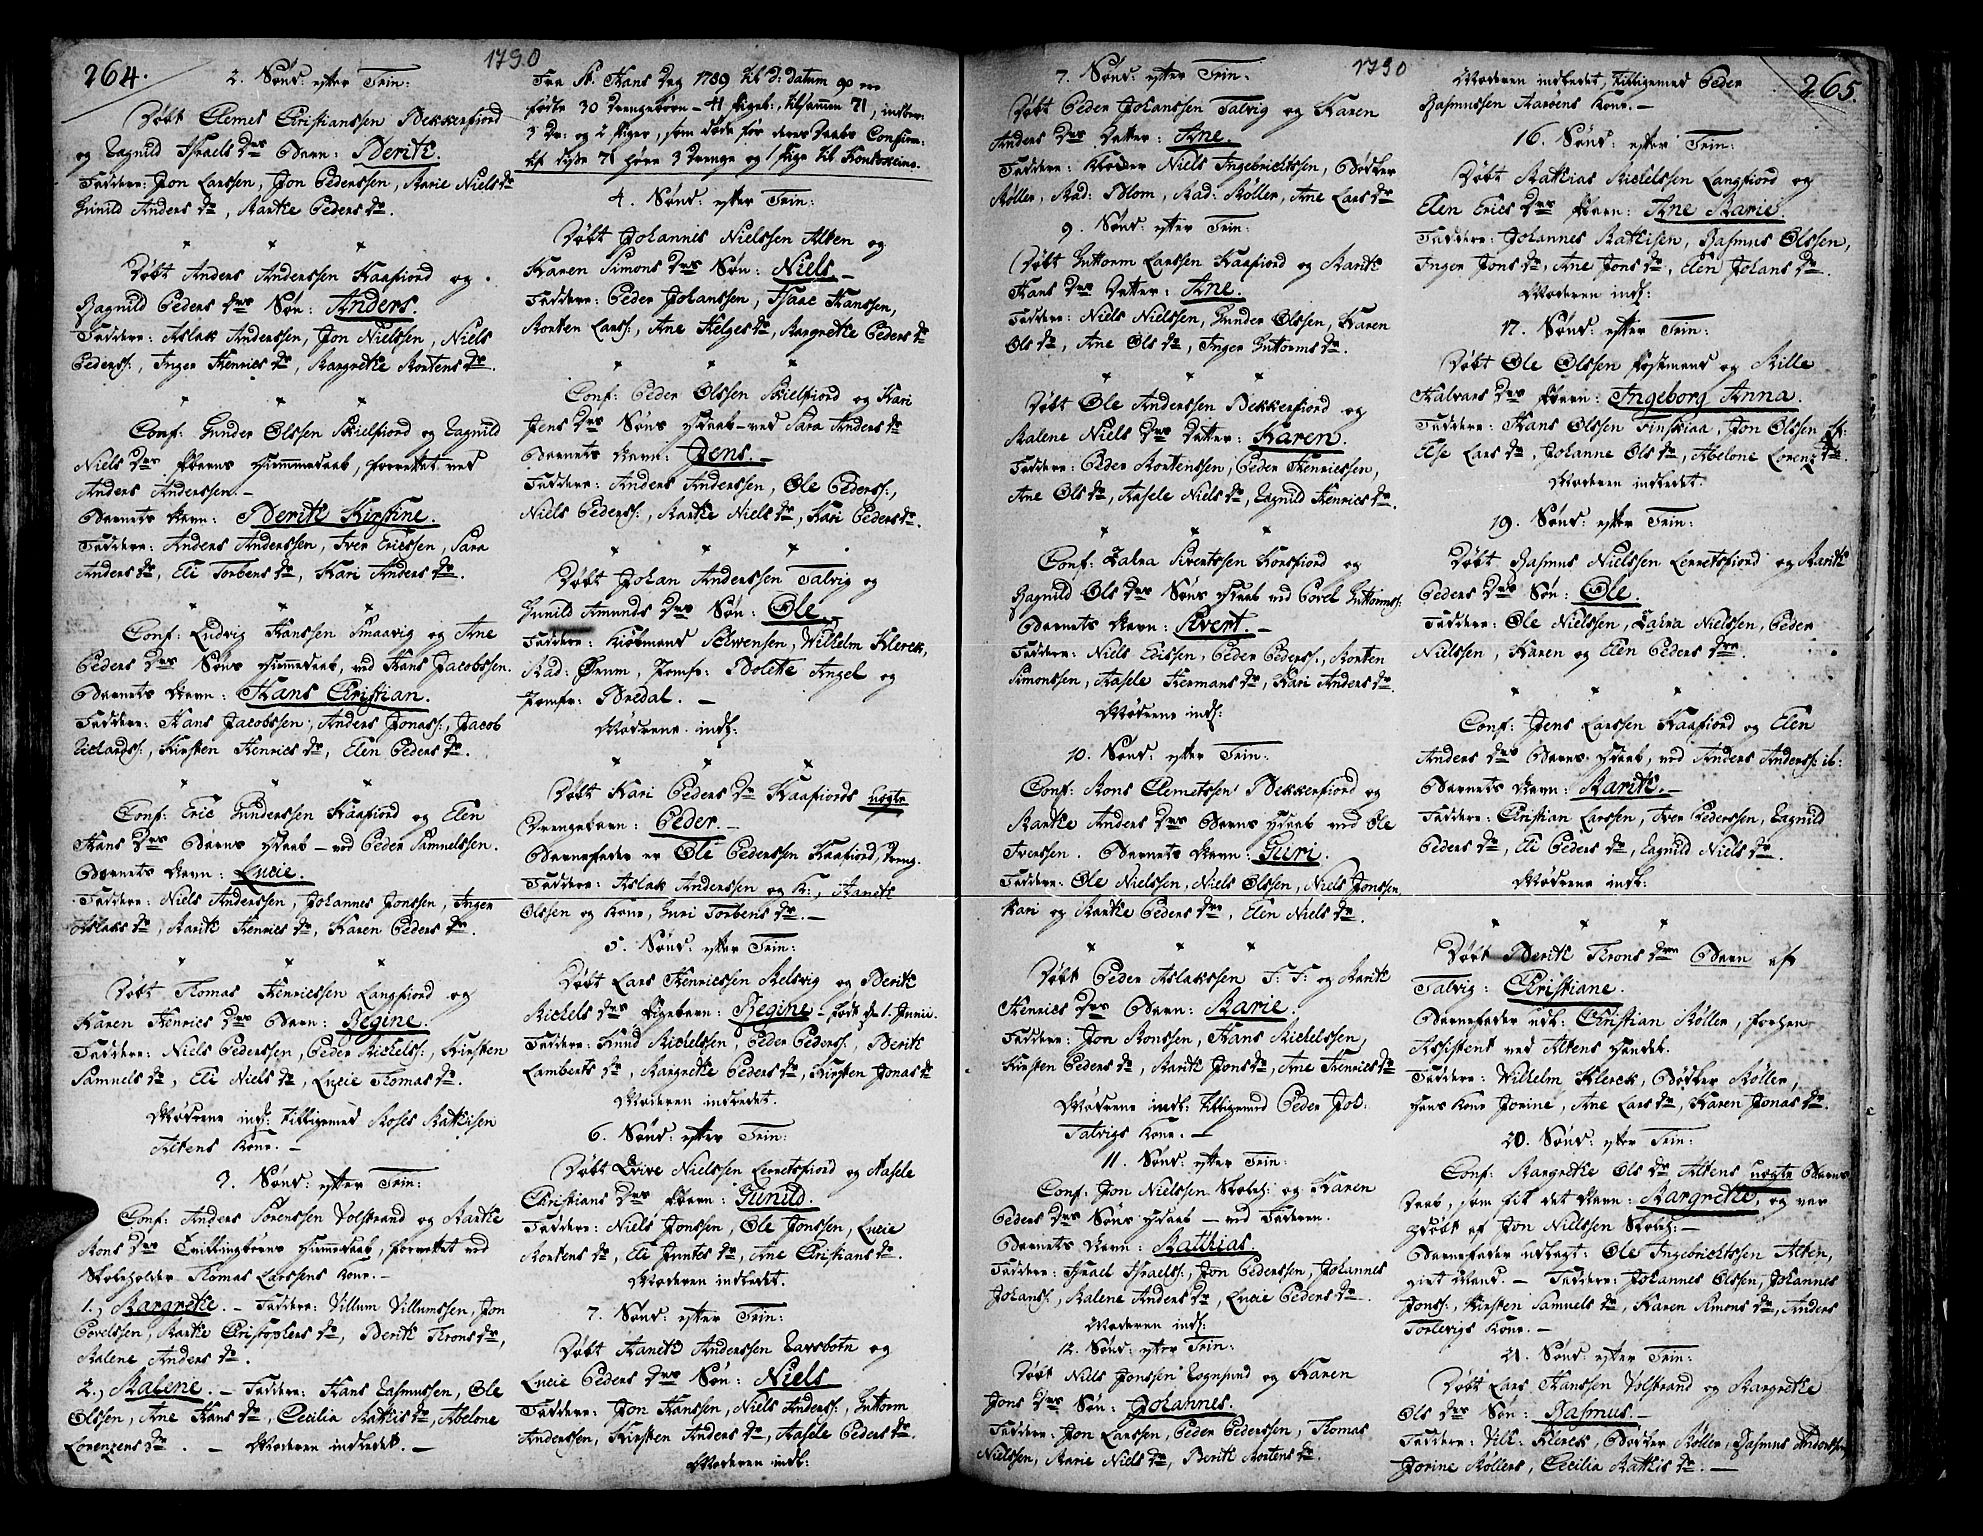 264.
1790
2. Sønd: efter Trin:
Døbt Clemet Christianssen Bekkerfiord
og Ragnild Israels Drs Barn: Berith.
Faddere: Jon Larssen, Jon Pederssen, Marie Niels Dr
Gunild Anders Dr, Marthe Peders Dr.
Døbt Anders Anderssen Kaafiord og
Ragnild Peders Drs Søn: Anders.
Faddere: Aslak Anderssen, Jon Nielssen, Niels
Peders:, Inger Henrics Dr, Margrethe Mortens Dr.
Conf: Gunder Olssen Skielfiord og Ragnild
Niels Drs Pbarns Hiemmedaab, forrettet ved
Anders Anderssen.-
Barnets Navn: Berith Kirstine.
Faddere: Anders Anderssen, Iver Ericssen, Sara
Anders Dr, Eli Torbens Dr, Kari Anders Dr.
Conf: Ludvig Hanssen Smaavig og Ane
Peders Drs Søns Hiemmedaab, ved Hans Jacobssen.
Barnets Navn: Hans Christian.
Faddere: Hans Jacobssen, Anders Jonass:, Jacob
Richards:, Kirsten Henrics Dr, Elen Peders Dr.
Conf: Eric Gunderssen Kaafiord og Elen
Hans Drs Barns Hdaab - ved Peder Samuelssen.
Barnets Navn: Lucie.
Faddere: Niels Anderssen, Johannes Jonssen, Inger
Aslaks Dr, Marith Henrics Dr, Karen Peders Dr.
Døbt Thomas Henricssen Langfiord og
Karen Henrics Drs Barn: Regine.
Faddere: Niels Pederssen, Peder Michels:, Kirsten
Samuels Dr, Eli Niels Dr, Lucie Thomas Dr.
Mødrene indl: tilligemed Moses Mathisen
Altens Kone.-
3. Sønd: efter Trin:
Conf: Anders Sørenssen Volstrand og Marthe
Mons Drs Tvillingbørns Hiemmedaab, forrettet ved
Skoleholder Thomas Larssens Kone.-
1., Margrethe.- Faddere: Villum Villumssen, Jon
Povelssen, Marthe Christophers Dr, Berith Throns Dr,
Malene Anders Dr.
2., Malene.- Faddere: Hans Rasmussen, Ole
Olssen, Ane Hans Dr, Cecilia Mathis Dr, Abelone
Lorenzens Dr. - Moderen indledet.-
Fra St. Hans Dag 1789 til d: datum ere
fødte 30 Drengebørn - 41 Pigeb:, tilsammen 71, indber:
3 Dr: og 2 Piger, som døde før deres Daabs Confirm:
Af disse 71 høre 3 Drenge og 1 Pige til Koutokeino.
4. Sønd: efter Trin:
Døbt Johannes Nielssen Alten og
Karen Simons Drs Søn: Niels.-
Faddere: Peder Johanssen, Isaac Hanssen,
Morten Lars:, Ane Helges Dr, Margrethe Peders Dr
Conf: Peder Olssen Skielfiord og Kari
Jens Drs Søns Hdaab - ved Sara Anders Dr
Barnets Navn: Jens.-
Faddere: Anders Anderssen, Ole Peders:,
Niels Peders:, Marthe Niels Dr, Kari Peders Dr.
Døbt Johan Anderssen Talvig og
Gunild Amunds Drs Søn: Ole.
Faddere: Kiøbmand Sølwensen, Wilhelm Klerck,
Mad: Ørum, Jomfr: Bolette Angel og
Jomfr: Bredal.-
Mødrene indl:
Døbt Kari Peders Dr Kaafiords uægte
Drengebarn: Peder.-
Barnefader er Ole Pederssen Kaafiord, Dreng.
Faddere: Aslak Anderssen og K:, Hanith
Olssen og Kone, Guri Torbens Dr.-
5. Sønd: efter Trin:
Døbt Lars Henricssen Melsvig og Berith
Michels Drs Pigebarn: Regine - født d. 1. Junii.
Faddere: Knud Michelssen, Peder Peders:, Berith
Lamberts Dr, Margrethe Peders Dr, Kirsten Jonas Dr
Moderen indledet.
6. Sønd: efter Trin:
Døbt Erive Nielssen Lerretsfiord og Aasele
Christians Drs Pbarn: Gunild.
Faddere: Niels Jonssen, Ole Jonssen, Lucie
Mortens Dr, Eli Juntes Dr, Ane Christians Dr.
Moderen indledet.
7. Sønd: efter Trin:
Døbt Hanith Anderssen Ravsbotn og
Lucie Peders Drs Søn: Niels
Faddere: Jon Hanssen, Niels Anders:, Guttorm
Anderssen, Kirsten Anders Dr, Aasele Peders Dr.
Moderen indl:
1790
265.
7. Sønd: efter Trin:
Døbt Peder Johanssen Talvig og Karen
Anders Drs Datter: Ane.
Faddere: Klokker Niels Ingebrichtssen, Bødker
Møller, Mad: Blom, Mad: Møller, Ane Lars Dr
9. Sønd: efter Trin:
Døbt Guttorm Larssen Kaafiord og Marith
Hans Drs Datter: Ane.
Faddere: Niels Nielssen, Gunder Olssen, Karen
Ols Dr, Ane Ols Dr, Inger Guttorms Dr.
Døbt Ole Anderssen Bekkerfiord og
Malene Niels Drs Datter: Karen.
Faddere: Peder Mortenssen, Peder Henricssen,
Ane Ols Dr, Aasele Niels Dr, Ragnild Henrics Dr.
Conf: Zakra Sivertssen Korsfiord og
Ragnild Ols Drs Søns Hdaab ved Povel Guttorms:
Barnets Navn: Sivert.-
Faddere: Niels Edissen, Peder Peders:, Morten
Simonssen, Aasele Hermans Dr, Kari Anders Dr.
Mødrene indl:
10. Sønd: efter Trin:
Conf: Mons Clemetssen Bekkerfiord og
Marthe Anders Drs Barns Hdaab ved Ole
Iverssen. Barnets Navn: Guri.
Faddere: Ole Nielssen, Niels Olssen, Niels Jonssen,
Kari og Marthe Peders Dre, Elen Niels Dr.
Døbt Peder Aslakssen F. F: og Marith
Henrics Drs Barn: Marie.
Faddere: Jon Monssen, Hans Michelssen,
Kirsten Peders Dr, Marith Jons Dr, Ane Henrics Dr
Mødrene indl: tilligemed Peder Joh:
Talvigs Kone.-
11. Sønd: efter Trin:
Conf: Jon Nielssen Skoleh: og Karen
Peders Drs Søns Hdaab - ved Faderen.
Barnets Navn: Matthias.
Faddere: Israel Israels:, Jon Pederssen, Johannes
Johans:, Malene Anders Dr, Lucie Peders Dr.
Moderen indl:
12. Sønd: efter Trin:
Døbt Niels Jonssen Rognsund og Karen
Jons Drs Søn: Johannes.
Faddere: Jon Larssen, Peder Pederssen, Thomas
Nielssen, Marie Niels Dr, Berith Mortens Dr.
Moderen indledet, tilligemed Peder
Rasmussen Aarøens Kone.-
16. Sønd: efter Trin:
Døbt Mathias Michelssen Langfiord og
Elen Erics Drs Pbarn: Ane Marie.
Faddere: Johannes Mathisen, Rasmus Olssen,
Inger Jons Dr, Ane Jons Dr, Elen Johans Dr.
Moderen indl:
17. Sønd: efter Trin:
Døbt Ole Olssen Postmand og Kille
Halvars Drs Pbarn: Ingeborg Anna.
Faddere: Hans Olssen Finskiaa, Jon Olssen
Else Lars Dr, Johanne Ols Dr, Abelone Lorenz Dr.
Moderen indledet.
19. Sønd: efter Trin:
Døbt Rasmus Nielssen Lerretsfiord og Marith
Peders Drs Søn: Ole.
Faddere: Ole Nielssen, Zakra Nielssen, Peder
Nielssen, Karen og Elen Peders Dre.
Conf: Jens Larssen Kaafiord og Elen
Anders Drs Barns Hdaab, ved Anders Anders: ib:
Barnets Navn: Marith.-
Faddere: Christian Larssen, Iver Pederssen, Ragnild
Peders Dr, Eli Peders Dr, Ragnild Niels Dr.
Mødrene indl:
Døbt Berith Throns Drs Barn af
Talvig: Christiane.
Barnefader udl: Christian Møller, forhen
Assistent ved Altens Handel.
Faddere: Wilhelm Klerck, Bødker Møller,
Hans Kone Jorine, Ane Lars Dr, Karen Jonas Dr.
20. Sønd: efter Trin:
Conf: Margrethe Ols Dr Altens uægte Barns
Daab, som fik det Navn: Margrethe, og var
døbt af Jon Nielssen Skoleh:-
Barnefader udlagt: Ole Ingebrichtssen Alten,
gift Mand.- Faddere: Johannes Olssen, Johannes
Jons:, Kirsten Samuels Dr, Karen Simons Dr, Anders
Torlevigs Kone.-
21. Sønd: efter Trin:
Døbt Lars Hanssen Volstrand og Margrethe
Ols Drs Søn: Rasmus.-
Faddere: Vill: Klerck, Bødker Møller, Rasmus Anderssen,
Jorine Møllers, Cecilia Mathis Dr.-